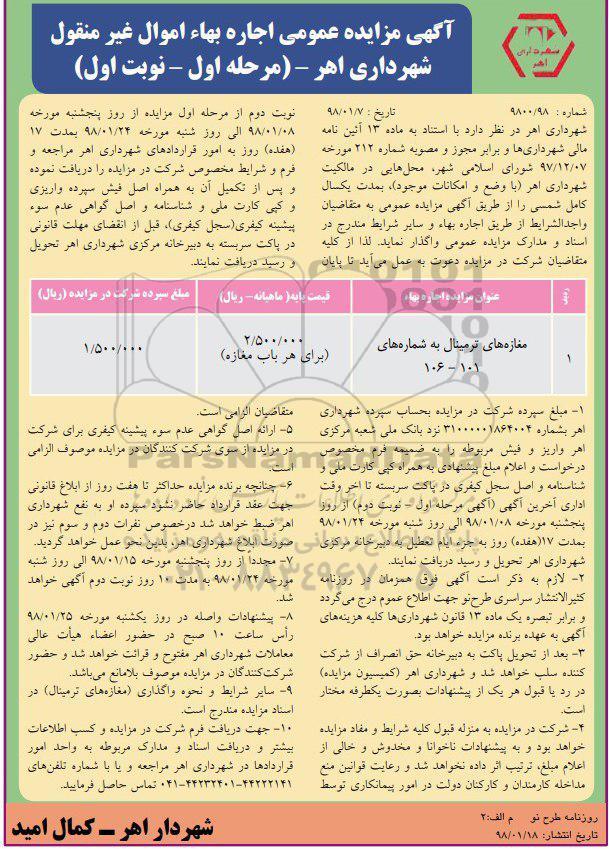 آگهی مزایده عمومی اجاره بهاء اموال غیر منقول
شهرداری اهر - (مرحله اول - نوبت اول)
شماره : ۹۸۰۰/۹۸ تاریخ : ۹۸/۰۱/۷
شهرداری اهر در نظر دارد با استناد به ماده ۱۳ آئین نامه
مالی شهرداری‌ها و برابر مجوز و مصوبه شماره ۲۱۲ مورخه
۹۷/۱۲/۰۷ شورای اسلامی شهر، محل‌هایی در مالکیت
شهرداری اهر (با وضع و امکانات موجود)، بمدت یکسال
کامل شمسی را از طریق آگهی مزایده عمومی به متقاضیان
واجدالشرایط از طریق اجاره بهاء و سایر شرایط مندرج در
اسناد و مدارک مزایده عمومی واگذار نماید. لذا از کلیه
متقاضیان شرکت در مزایده دعوت به عمل می‌آید تا پایان
نوبت دوم از مرحله اول مزایده از روز پنجشنبه مورخه
۹۸/۰۱/۰۸ الی روز شنبه مورخه ۹۸/۰۱/۲۴ بمدت ۱۷
(هفده) روز به امور قراردادهای شهرداری اهر مراجعه و
فرم و شرایط مخصوص شرکت در مزایده را دریافت نموده
و پس از تکمیل آن به همراه اصل فیش سپرده واریزی
و کپی کارت ملی و شناسنامه و اصل گواهی عدم سوء
پیشینه کیفری(سجل کیفری)، قبل از انقضای مهلت قانونی
در پاکت سربسته به دبیرخانه مرکزی شهرداری اهر تحویل
و رسید دریافت نمایند.
ردیف عنوان مزایده اجاره بهاء قیمت پایه( ماهیانه- ریال) مبلغ سپرده شرکت در مزایده (ریال)
۱ مغازه‌های ترمینال به شماره‌های ۱۰۱ - ۱۰۶ ۲/۵۰۰/۰۰۰ (برای هر باب مغازه) ۱/۵۰۰/۰۰۰
۱- مبلغ سپرده شرکت در مزایده بحساب سپرده شهرداری
اهر بشماره ۳۱۰۰۰۰۰۱۸۶۴۰۰۴ نزد بانک ملی شعبه مرکزی
اهر واریز و فیش مربوطه را به ضمیمه فرم مخصوص
درخواست و اعلام مبلغ پیشنهادی به همراه کپی کارت ملی و
شناسنامه و اصل سجل کیفری در پاکت سربسته تا آخر وقت
اداری آخرین آگهی (آگهی مرحله اول - نوبت دوم) از روز
پنجشنبه مورخه ۹۸/۰۱/۰۸ الی روز شنبه مورخه ۹۸/۰۱/۲۴
بمدت ۱۷(هفده) روز به جزء ایام تعطیل به دبیرخانه مرکزی
شهرداری اهر تحویل و رسید دریافت نمایند.
۲- لازم به ذکر است آگهی فوق همزمان در روزنامه
کثیرالانتشار سراسری طرح‌نو جهت اطلاع عموم درج می‌گردد
و برابر تبصره یک ماده ۱۳ قانون شهرداری‌ها کلیه هزینه‌های
آگهی به عهده برنده مزایده خواهد بود.
۳- بعد از تحویل پاکت به دبیرخانه حق انصراف از شرکت
کننده سلب خواهد شد و شهرداری اهر (کمیسیون مزایده)
در رد یا قبول هر یک از پیشنهادات بصورت یکطرفه مختار
است.
۴- شرکت در مزایده به منزله قبول کلیه شرایط و مفاد مزایده
خواهد بود و به پیشنهادات ناخوانا و مخدوش و خالی از
اعلام مبلغ، ترتیب اثر داده نخواهد شد و رعایت قوانین منع
مداخله کارمندان و کارکنان دولت در امور پیمانکاری توسط
متقاضیان الزامی است.
۵- ارائه اصل گواهی عدم سوء پیشینه کیفری برای شرکت
در مزایده از سوی شرکت کنندگان در مزایده موصوف الزامی
است.
۶- چنانچه برنده مزایده حداکثر تا هفت روز از ابلاغ قانونی
جهت عقد قرارداد حاضر نشود سپرده او به نفع شهرداری
اهر ضبط خواهد شد درخصوص نفرات دوم و سوم نیز در
صورت ابلاغ شهرداری اهر، بدین نحو عمل خواهد گردید.
۷- مجدداً از روز پنجشنبه مورخه ۹۸/۰۱/۱۵ الی روز شنبه
مورخه ۹۸/۰۱/۲۴ به مدت ۱۰ روز نوبت دوم آگهی خواهد
شد.
۸- پیشنهادات واصله در روز یکشنبه مورخه ۹۸/۰۱/۲۵
رأس ساعت ۱۰ صبح در حضور اعضاء هیأت عالی
معاملات شهرداری اهر مفتوح و قرائت خواهد شد و حضور
شرکت‌کنندگان در مزایده موصوف بلامانع می‌باشد.
۹- سایر شرایط و نحوه واگذاری (مغازه‌های ترمینال) در
اسناد مزایده مندرج است.
۱۰- جهت دریافت فرم شرکت در مزایده و کسب اطلاعات
بیشتر و دریافت اسناد و مدارک مربوطه به واحد امور
قراردادها در شهرداری اهر مراجعه و یا با شماره تلفن‌های
۴۴۲۲۲۱۴۱-۴۴۲۳۲۴۰۱-۰۴۱ تماس حاصل فرمایید.
روزنامه طرح نو م الف:۲
تاریخ انتشار: ۹۸/۰۱/۱۸
شهردار اهر ــ کمال امید
ParsNamadData